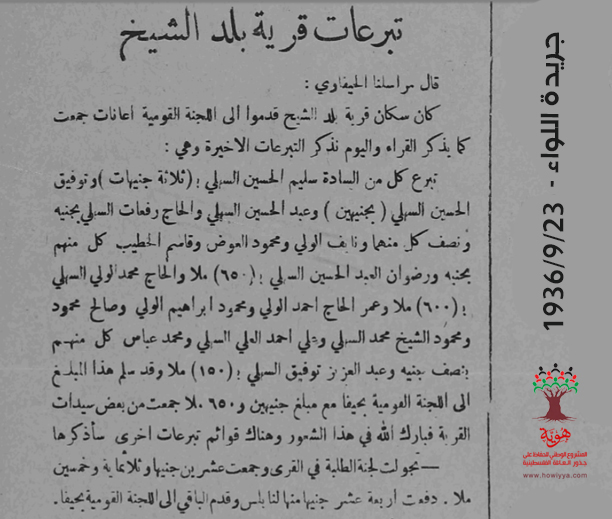 تبرعات قرية بلد الشيخ
قال مراسلنا الحيفاوي :
كان سكان قرية بلد الشيخ قدموا الى اللجنة القومية اعانات جمعت
كما يذكر القراء واليوم نذكر التبرعات الاخيرة وهي :
تبرع كل من السادة سليم الحسين السهلي بـ (ثلاثة جنيهات) وتوفيق
الحسين السهلي ( بجنيهين ) وعبد الحسين السهلي والحاج رفعات السهلي بجنيه
ونصف كل منهما ونايف الولي ومحمود العوض وقاسم الخطيب كل منهم
بجنيه ورضوان العبد الحسين السهلي بـ (٦٥٠) ملا والحاج محمد الولي السهلي
بـ (٦٠٠) ملا وعمر الحاج احمد الولي ومحمود ابراهيم الولي وصالح محمود
ومحمود الشيخ محمد السهلي وعلي احمد العلي السهلي ومحمد عباس كل منهم
بنصف جنيه وعبد العزيز توفيق السهلي بـ (١٥٠) ملا وقد سلم هذا المبلغ
الى اللجنة القومية بحيفا مع مبلغ جنيهين و٦٥٠ ملا جمعت من بعض سيدات
القرية فبارك الله في هذا الشعور وهناك قوائم تبرعات اخرى سأذكرها
— تجولت لجنة الطلبة في القرى وجمعت عشرين جنيها وثلاثماية وخمسين
ملا . دفعت اربعة عشر جنيها منها لنابلس وقدم الباقي الى اللجنة القومية بحيفا .
جريدة اللواء - 1936/9/23
هوية
المشروع الوطني للحفاظ على
جذور العائلة الفلسطينية
www.howiyya.com